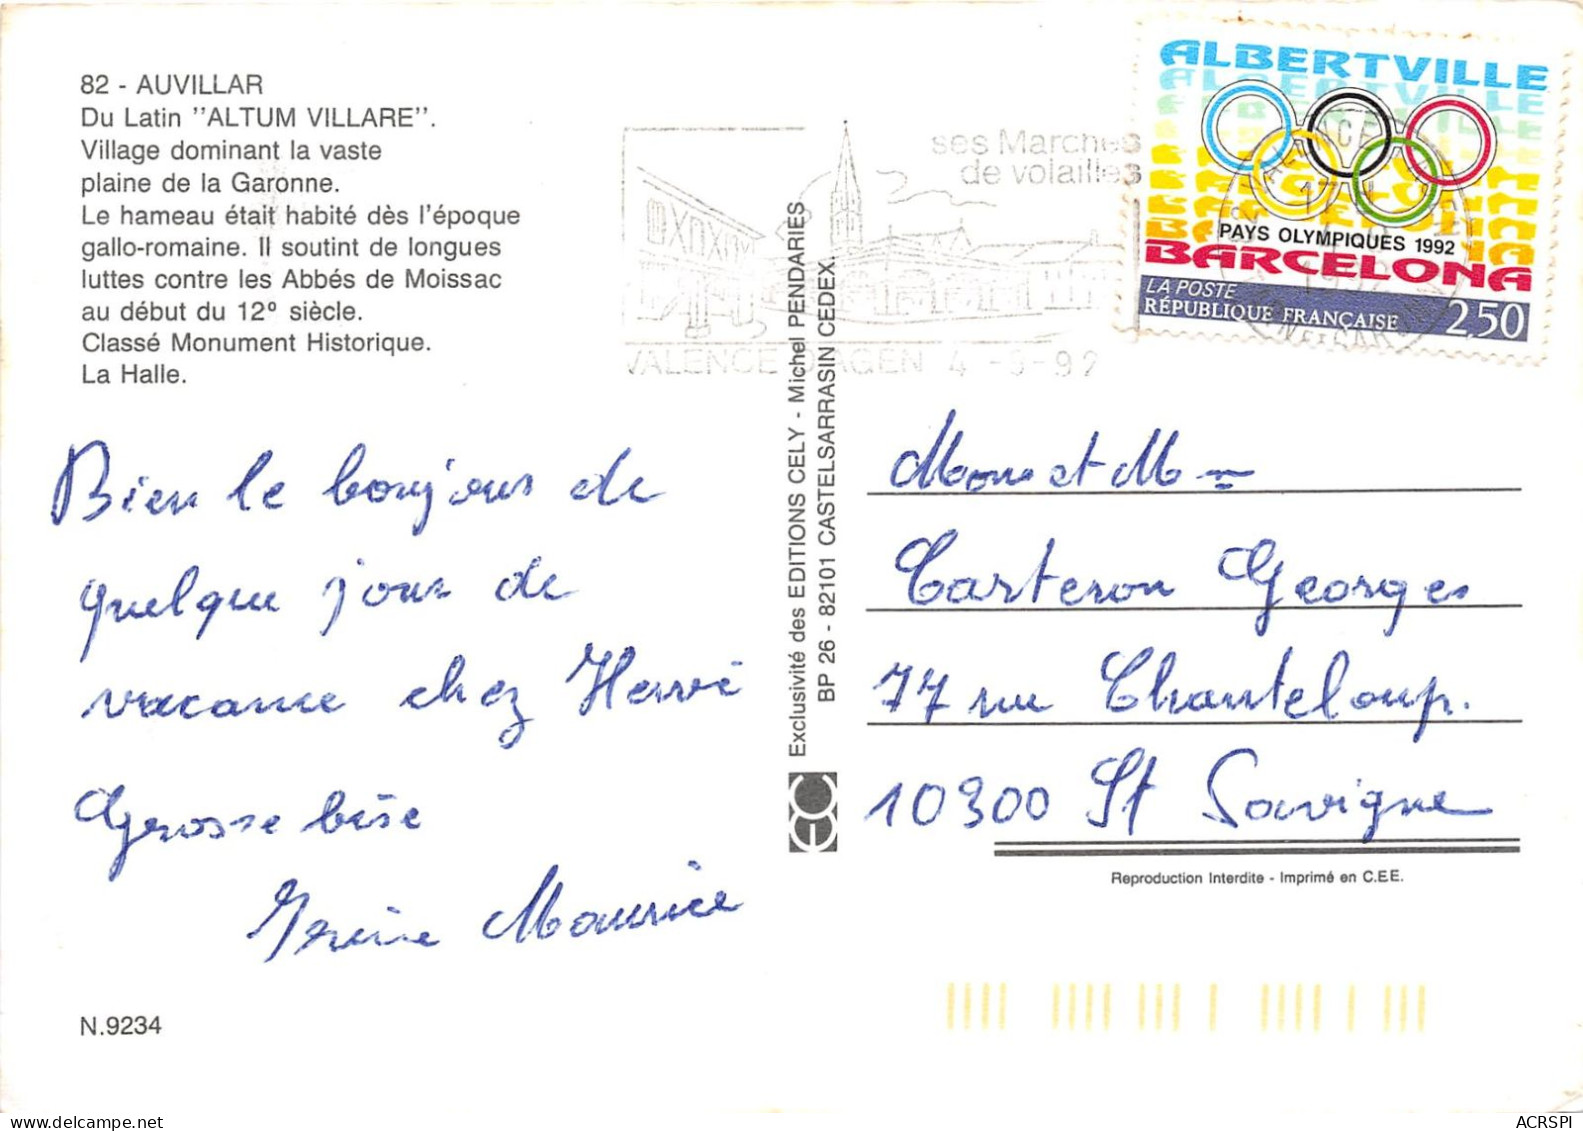 82 - AUVILLAR
Du Latin "ALTUM VILLARE".
Village dominant la vaste
plaine de la Garonne.
Le hameau était habité dès l'époque
gallo-romaine. Il soutint de longues
luttes contre les Abbés de Moissac
au début du 12º siècle.
Classé Monument Historique.
La Halle.
Bien le bonjour de
quelque jour de
vacance chez Hervé
Grosse bise
Maurice
N.9234
ses Marches
de volailles
VALENCE D'AGEN 4 -9-92
Exclusivité des EDITIONS CELY - Michel PENDARIES
BP 26 - 82101 CASTELSARRASIN CEDEX.
ALBERTVILLE
PAYS OLYMPIQUES 1992
BARCELONA
LA POSTE
RÉPUBLIQUE FRANÇAISE 2,50
et M
Carteron Georges
77 rue Chanteloup.
10300 St Savigne
Reproduction Interdite - Imprimé en C.E.E.
ACRSPI